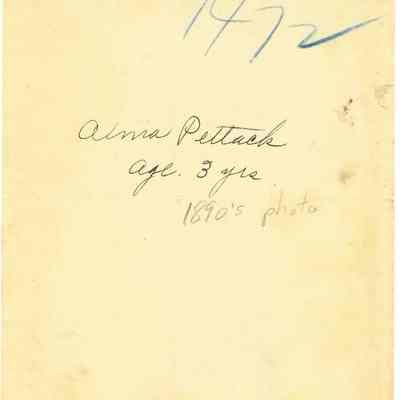 1472
Alma Pettack
age. 3 yrs
1890's photo